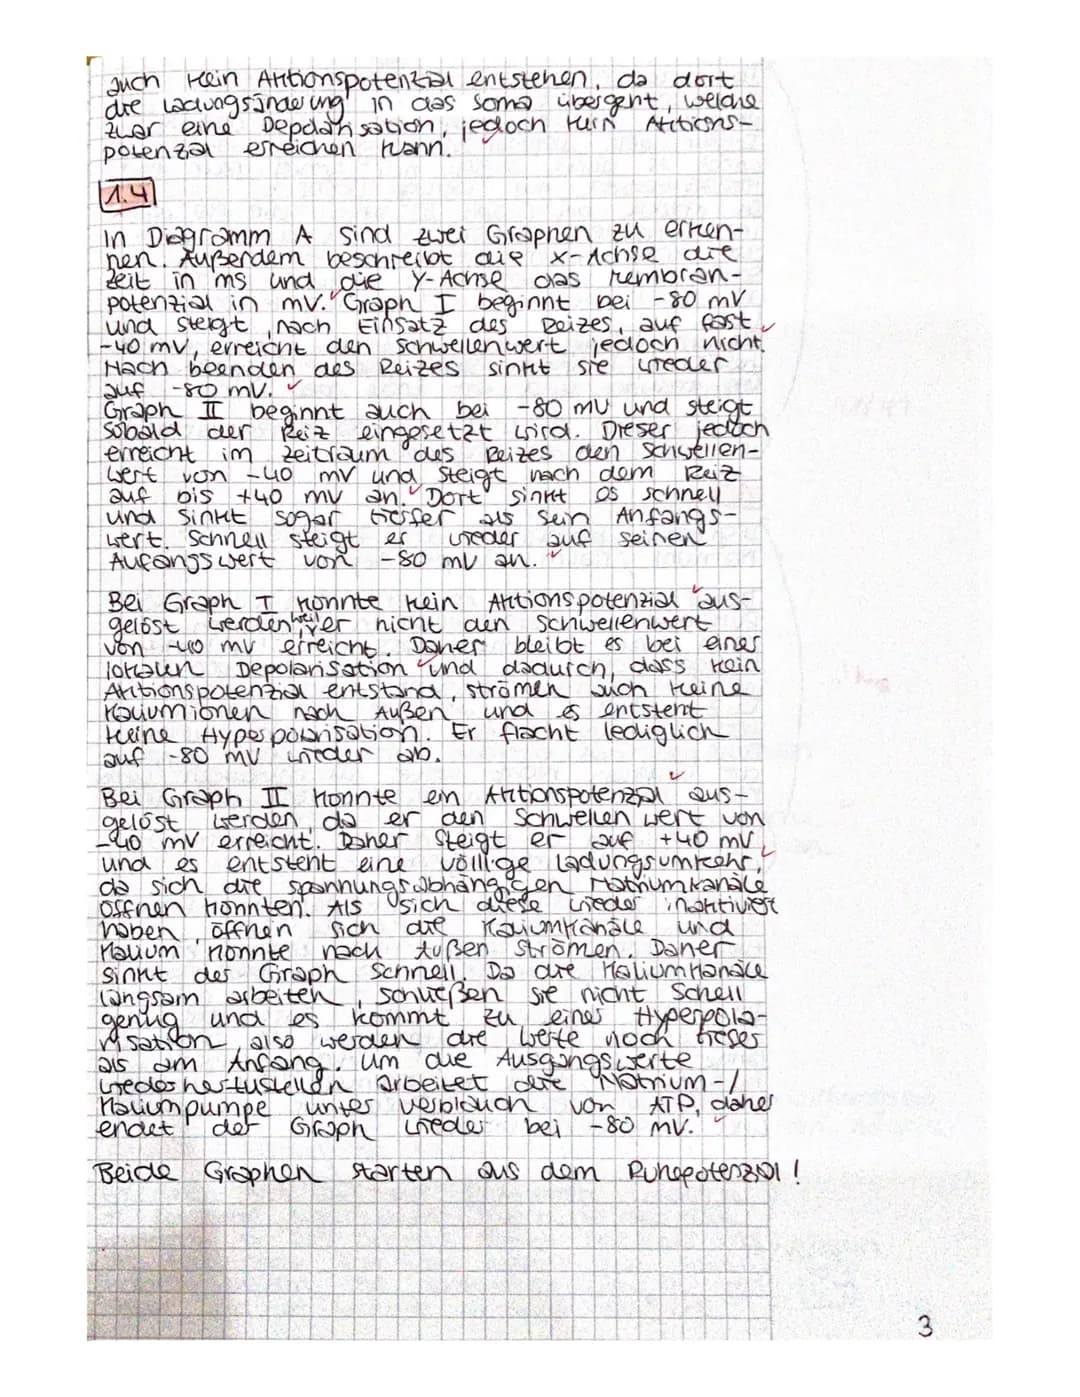 auch kein Aktionspotenzial entstehen, da dort
die Ladungsänderung in das Soma übergeht, welche
zwar eine Depolarisation, jedoch kein Aktions-
potenzial erreichen kann.
1.4
In Diagramm A sind zwei Graphen zu erken-
nen. Außerdem beschreibt die x-Achse die
Zeit in ms und die Y-Achse das Membran-
potenzial in mV. Graph I beginnt bei -80 mV
und steigt, nach Einsatz des Reizes, auf fast
-40 mV, erreicht den Schwellenwert jedoch nicht.
Nach beenden des Reizes sinkt sie wieder
auf -80 mV.
Graph II beginnt auch bei -80 mV und steigt
sobald der Reiz eingesetzt wird. Dieser jedoch
erreicht im Zeitraum des Reizes den Schwellen-
wert von -40 mV und steigt nach dem Reiz
auf bis +40 mV an. Dort sinkt es schnell
und sinkt sogar tiefer als sein Anfangs-
wert. Schnell steigt er wieder auf seinen
Anfangswert von -80 mV an.
Bei Graph I konnte kein Aktionspotenzial aus-
gelöst werden, weil er nicht den Schwellenwert
von -40 mV erreicht. Daher bleibt es bei einer
lokalen Depolarisation und dadurch, dass kein
Aktionspotenzial entstand, strömen auch keine
Kaliumionen nach Außen und es entsteht
keine Hyperpolarisation. Er flacht lediglich
auf -80 mV wieder ab.
Bei Graph II konnte ein Aktionspotenzial aus-
gelöst werden, da er den Schwellenwert von
-40 mV erreicht. Daher steigt er auf +40 mV
und es entsteht eine völlige Ladungsumkehr,
da sich die spannungsabhängigen Natriumkanäle
öffnen konnten. Als sich diese wieder inaktiviert
haben, öffnen sich die Kaliumkanäle und
Kalium konnte nach Außen strömen. Daher
sinkt der Graph schnell. Da die Kaliumkanäle
langsam arbeiten, schließen sie nicht schell
genug und es kommt zu einer Hyperpola-
risation, also werden die Werte noch tiefer
als am Anfang. Um die Ausgangswerte
wiederherzustellen arbeitet die Natrium-/
Kaliumpumpe unter Verbrauch von ATP, daher
endet der Graph wieder bei -80 mV.
Beide Graphen starten aus dem Ruhepotenzial!
3